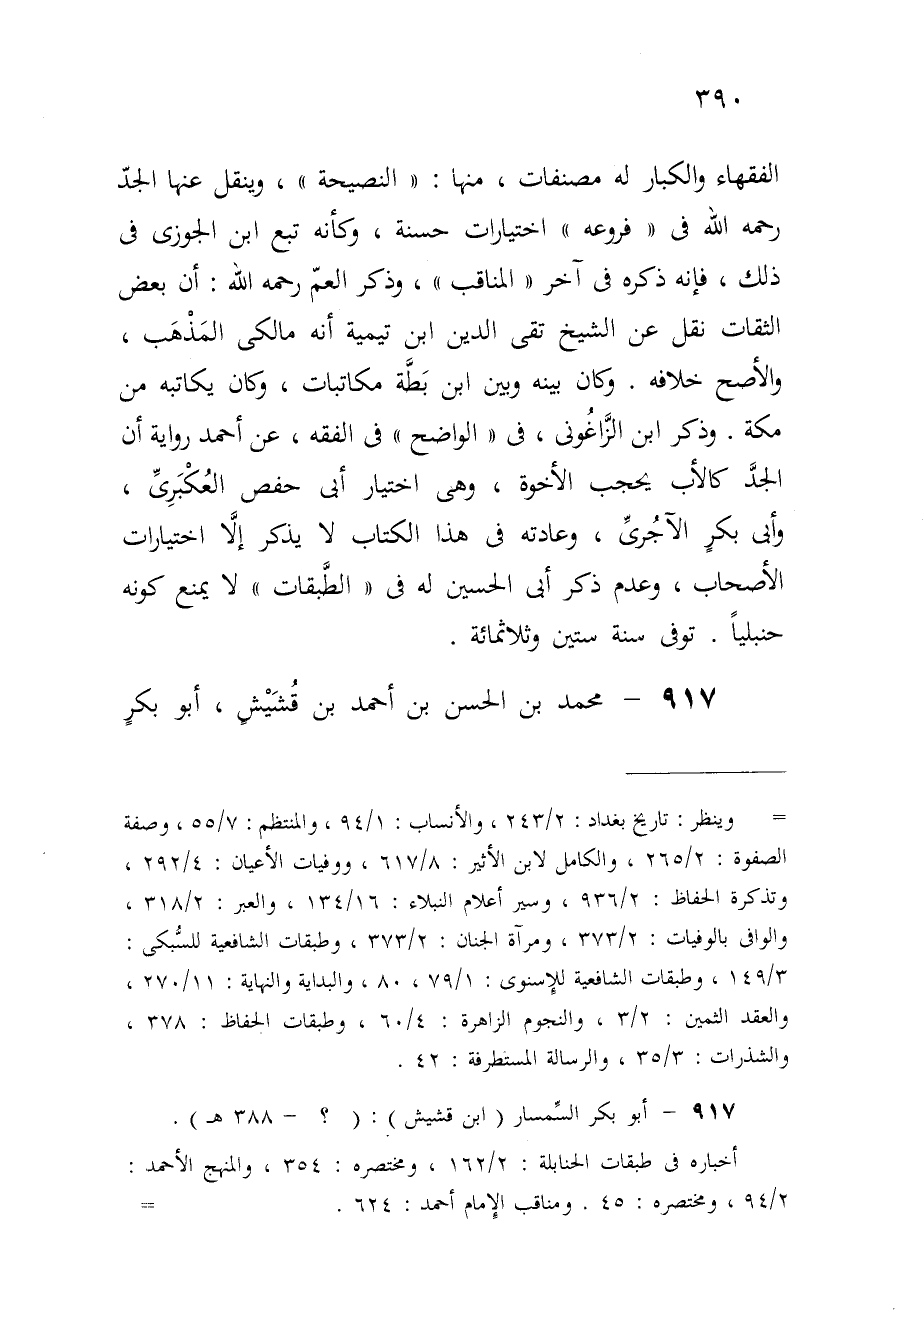 ٣٩٠
الفقهاء والكبار له مصنفات ، منها : « النصيحة » ، وينقل عنها الجدّ
رحمه الله فى « فروعه » اختيارات حسنة ، وكأنه تبع ابن الجوزى فى
ذلك ، فإنه ذكره فى آخر « المناقب » ، وذكر العمّ رحمه الله : أن بعض
الثقات نقل عن الشيخ تقى الدين ابن تيمية أنه مالكى المَذْهَب ،
والأصح خلافه . وكان بينه وبين ابن بَطَّة مكاتبات ، وكان يكاتبه من
مكة . وذكر ابن الزَّاغُونى ، فى « الواضح » فى الفقه ، عن أحمد رواية أن
الجدَّ كالأب يحجب الأخوة ، وهى اختيار أبى حفص العُكْبَرِىِّ ،
وأبى بكرٍ الآجُرىِّ ، وعادته فى هذا الكتاب لا يذكر إلَّا اختيارات
الأصحاب ، وعدم ذكر أبى الحسين له فى « الطَّبقات » لا يمنع كونه
حنبلياً . توفى سنة ستين وثلاثمائة .
٩١٧ – محمد بن الحسن بن أحمد بن قُشَيْشٍ ، أبو بكرٍ
= وينظر : تاريخ بغداد : ٢٤٣/٢ ، والأنساب : ٩٤/١ ، والمنتظم : ٥٥/٧ ، وصفة
الصفوة : ٢٦٥/٢ ، والكامل لابن الأثير : ٦١٧/٨ ، ووفيات الأعيان : ٢٩٢/٤ ،
وتذكرة الحفاظ : ٩٣٦/٢ ، وسير أعلام النبلاء : ١٣٤/١٦ ، والعبر : ٣١٨/٢ ،
والوافى بالوفيات : ٣٧٣/٢ ، ومرآة الجنان : ٣٧٣/٢ ، وطبقات الشافعية للسُّبكى :
١٤٩/٣ ، وطبقات الشافعية للإسنوى : ٧٩/١ ، ٨٠ ، والبداية والنهاية : ٢٧٠/١١ ،
والعقد الثمين : ٣/٢ ، والنجوم الزاهرة : ٦٠/٤ ، وطبقات الحفاظ : ٣٧٨ ،
والشذرات : ٣٥/٣ ، والرسالة المستطرفة : ٤٢ .
٩١٧ – أبو بكر السِّمسار ( ابن قشيش ) : ( ؟ – ٣٨٨ هـ ) .
أخباره فى طبقات الحنابلة : ١٦٢/٢ ، ومختصره : ٣٥٤ ، والمنهج الأحمد :
٩٤/٢ ، ومختصره : ٤٥ . ومناقب الإمام أحمد : ٦٢٤ . =